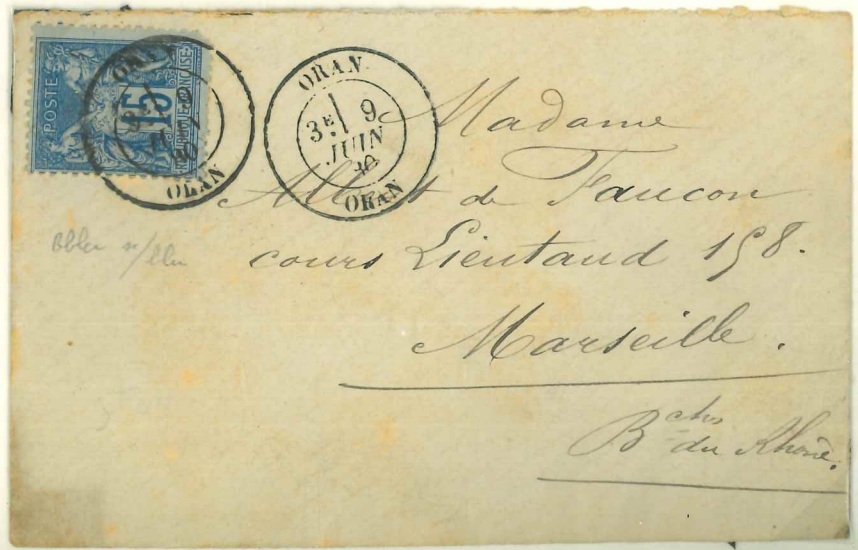 POSTE
15
ORAN
ORAN
ORAN
3E 9
JUIN
80
ORAN
Madame
Albert de Faucon
cours Lieutaud 158.
Marseille.
Bches du Rhône.